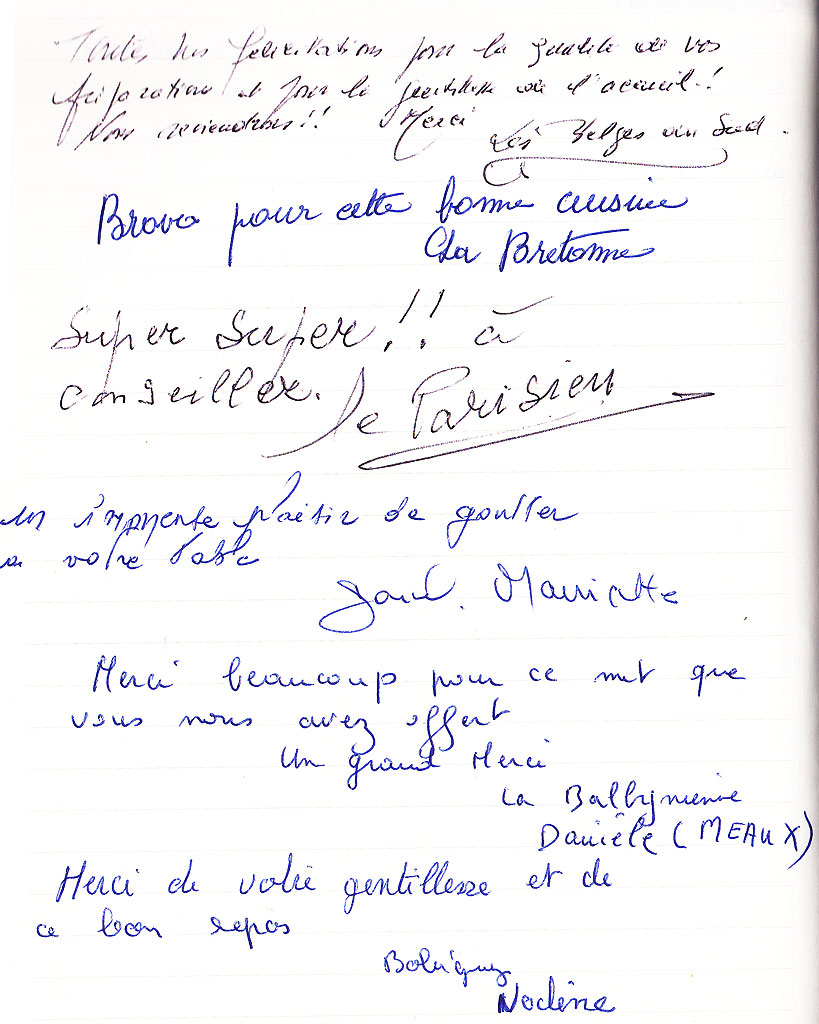 Toutes nos félicitations pour la qualité de vos
préparations et pour la gentillesse de l'accueil!
Nous reviendrons!! Merci
Les Belges du Sud.
Bravo pour cette bonne cuisine
La Bretonne
Super Super!! à
conseiller. le Parisien
un immense plaisir de goutter
a votre table
Mauricette
Merci beaucoup pour ce met que
vous nous avez offert
Un grand Merci
La Balbynienne
Danièle (MEAUX)
Merci de votre gentillesse et de
ce bon repas
Bobigny
Nadine